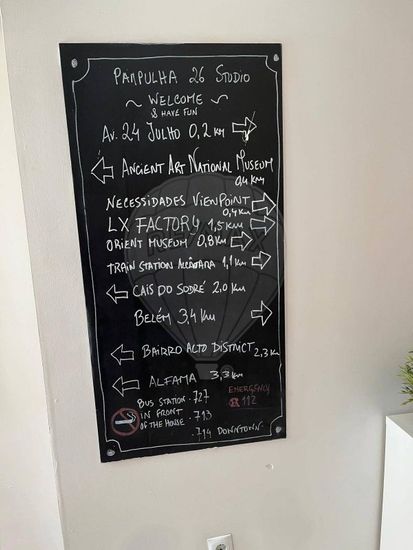 PAMPULHA 26 STUDIO
WELCOME
& HAVE FUN
AV. 24 JULHO 0,2 KM
ANCIENT ART NATIONAL MUSEUM
0,4 KM
NECESSIDADES VIEWPOINT
0,4 KM
LX FACTORY 1,5 KM
ORIENT MUSEUM 0,8 KM
TRAIN STATION ALCÂNTARA 1,1 KM
CAIS DO SODRÉ 2,0 KM
BELÉM 3,4 KM
BAIRRO ALTO DISTRICT 2,3 KM
ALFAMA 3,3 KM
EMERGENCY
112
BUS STATION · 727
IN FRONT · 713
OF THE HOUSE
· 714 DOWNTOWN